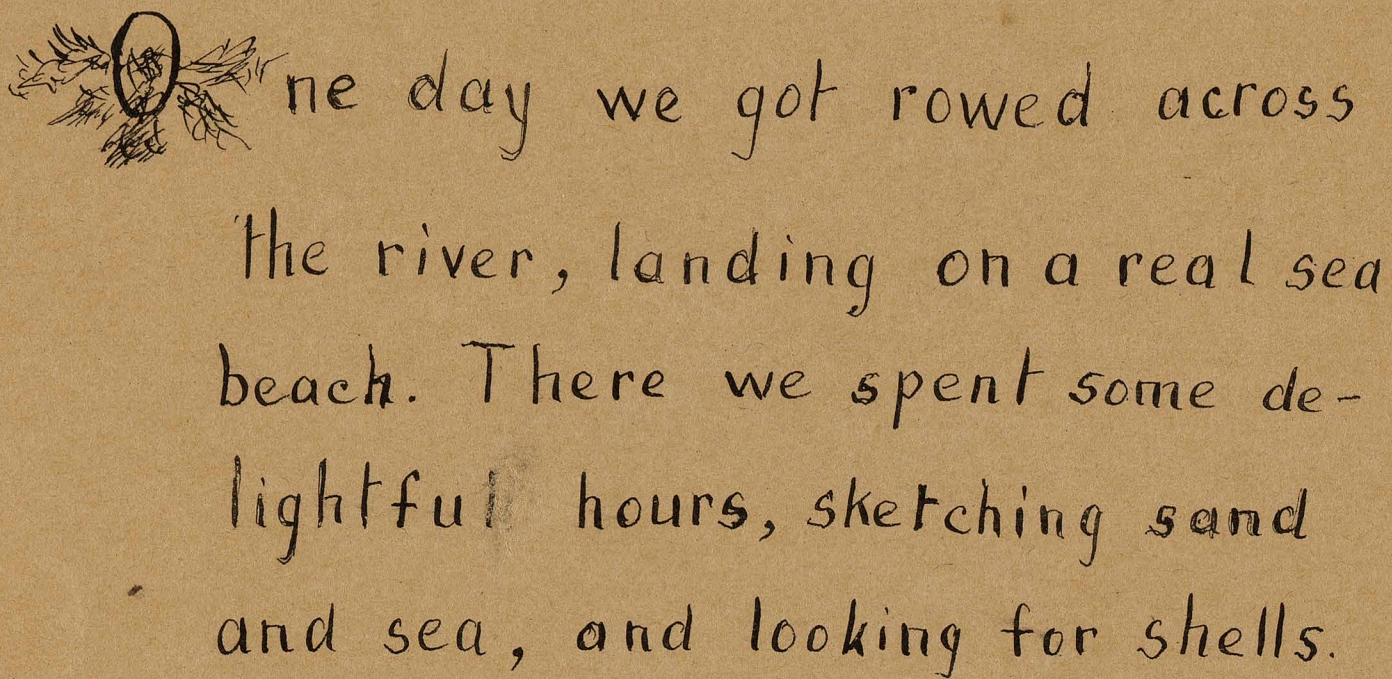 One day we got rowed across
the river, landing on a real sea
beach. There we spent some de-
lightful hours, sketching sand
and sea, and looking for shells.